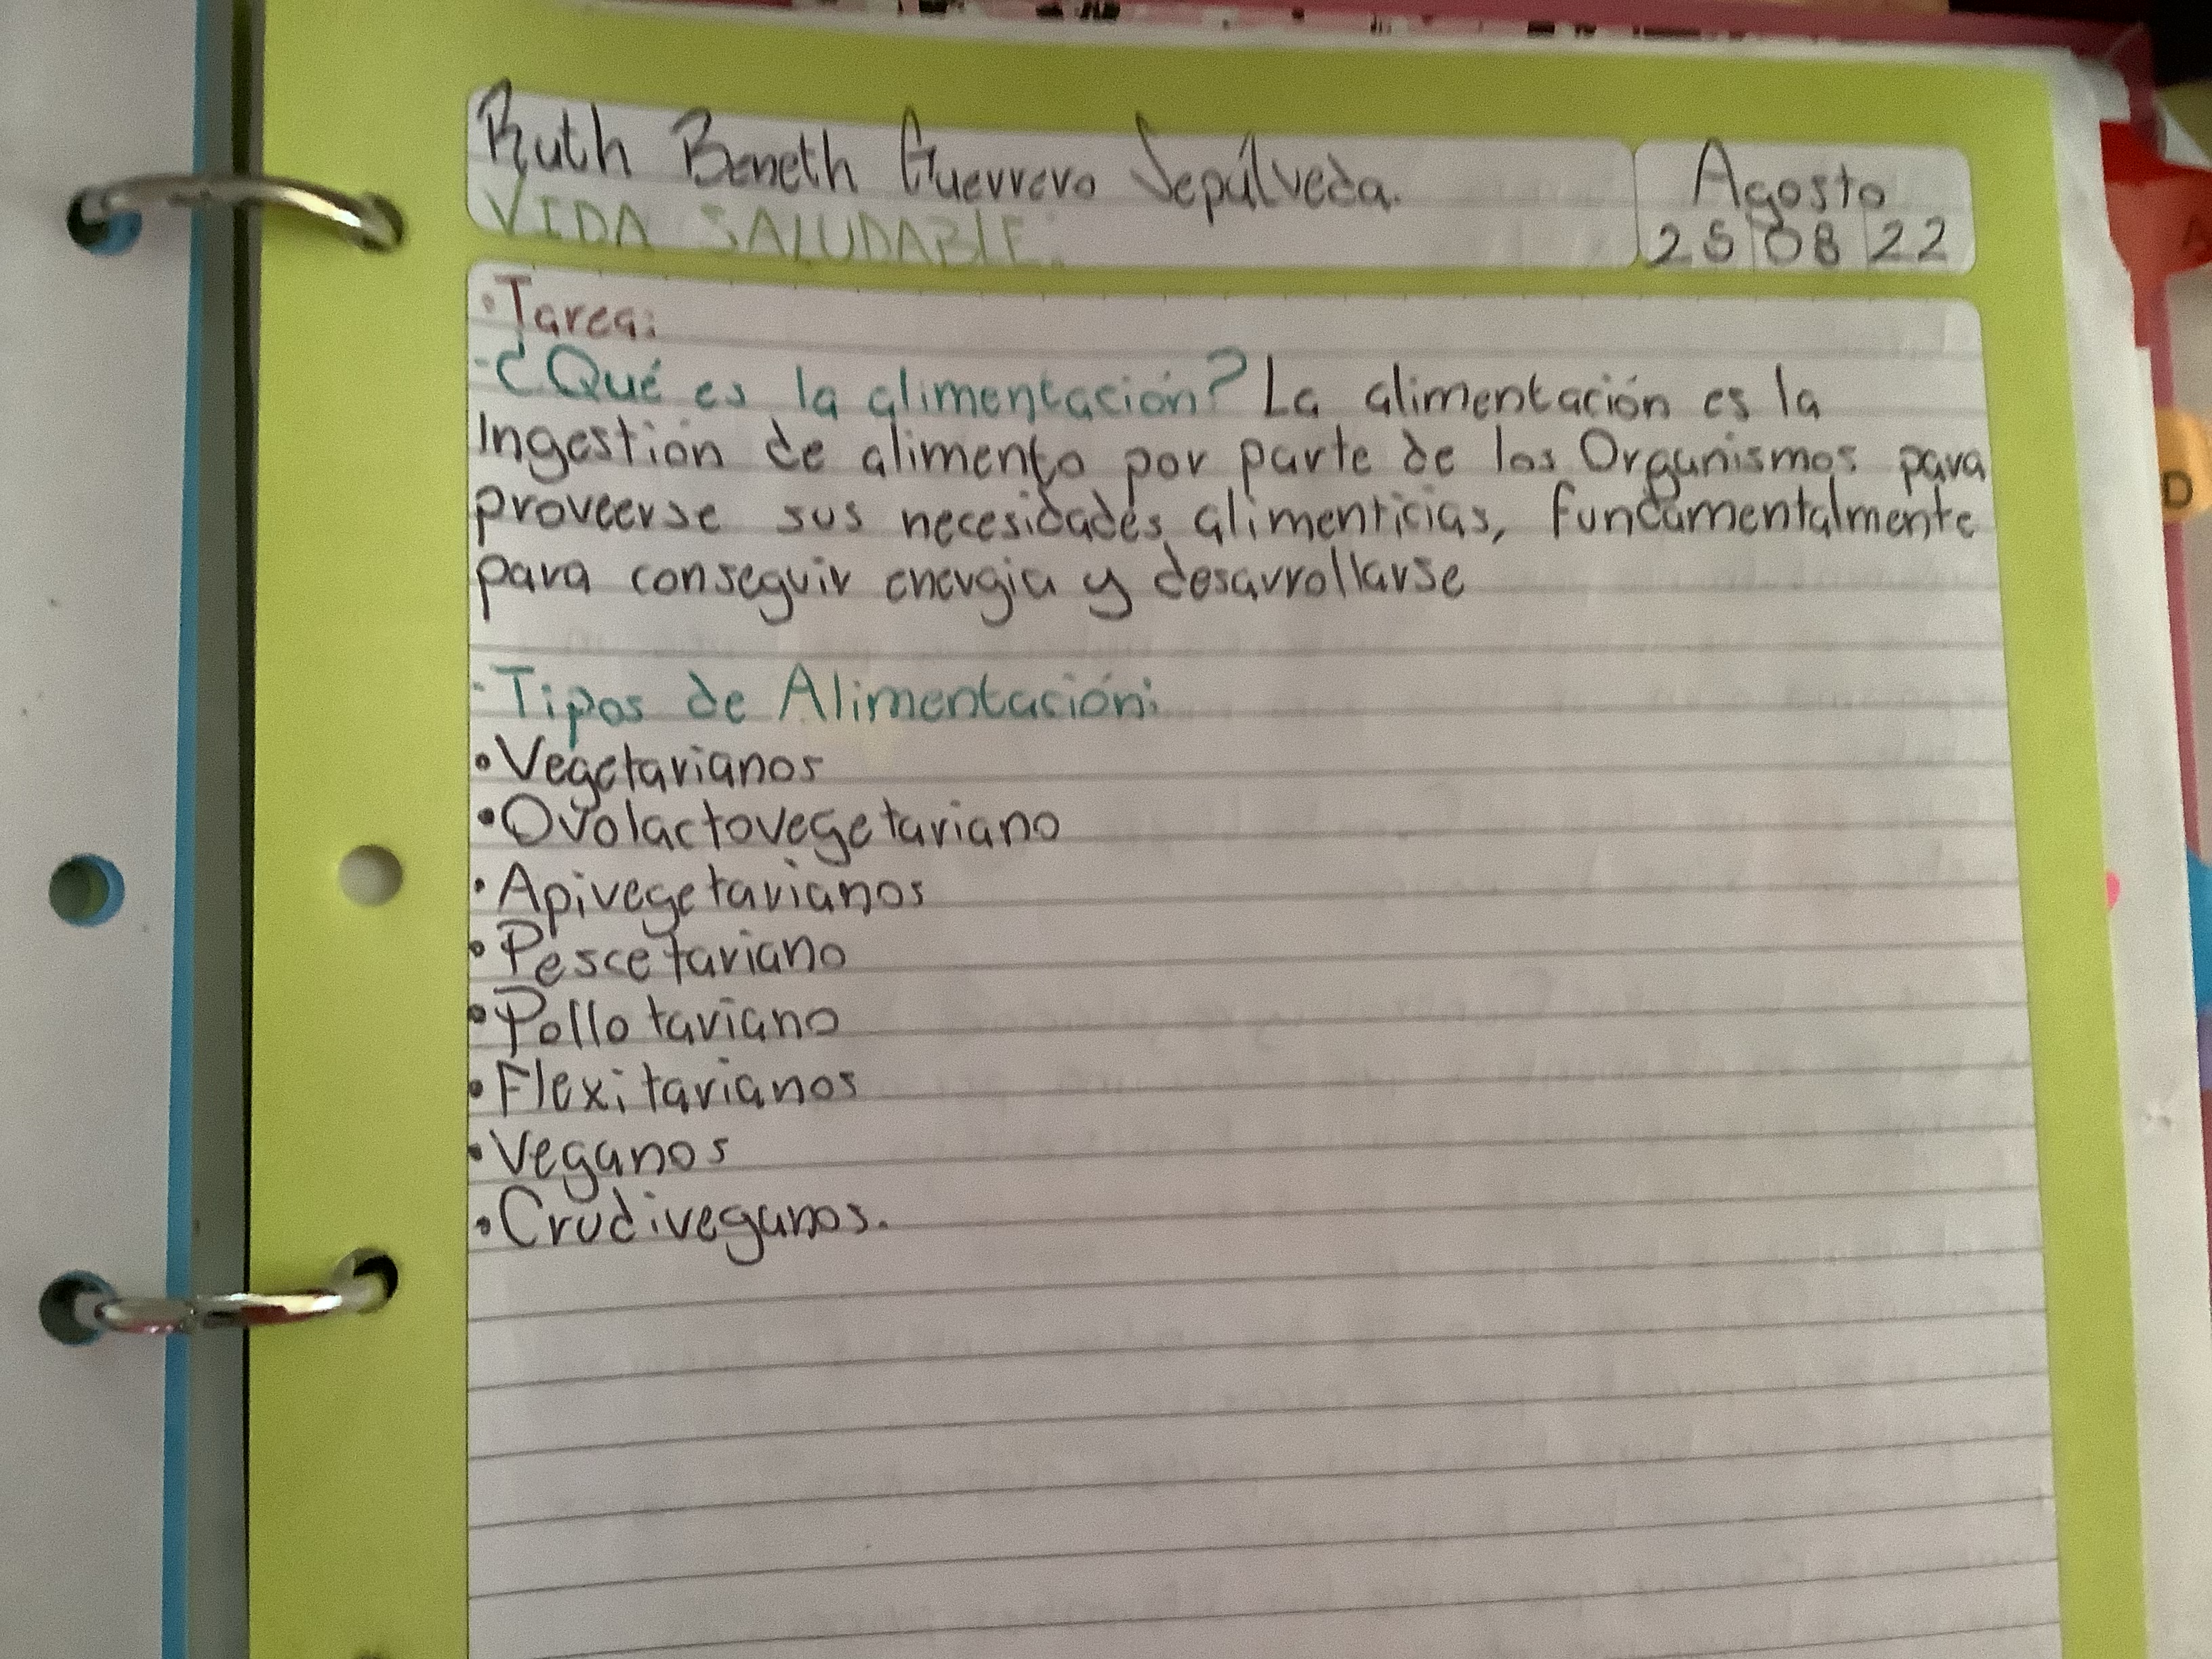 Ruth Beneth Guerrero Sepúlveda.
Agosto
VIDA SALUDABLE.
25 08 22
•Tarea:
-¿Qué es la alimentación? La alimentación es la
Ingestión de alimento por parte de los Organismos para
proveerse sus necesidades alimenticias, fundamentalmente
para conseguir energia y desarrollarse
-Tipos de Alimentación:
•Vegetarianos
•Ovolactovegetariano
•Apivegetarianos
•Pescetariano
•Pollotariano
•Flexitarianos
•Veganos
•Crudiveganos.
D